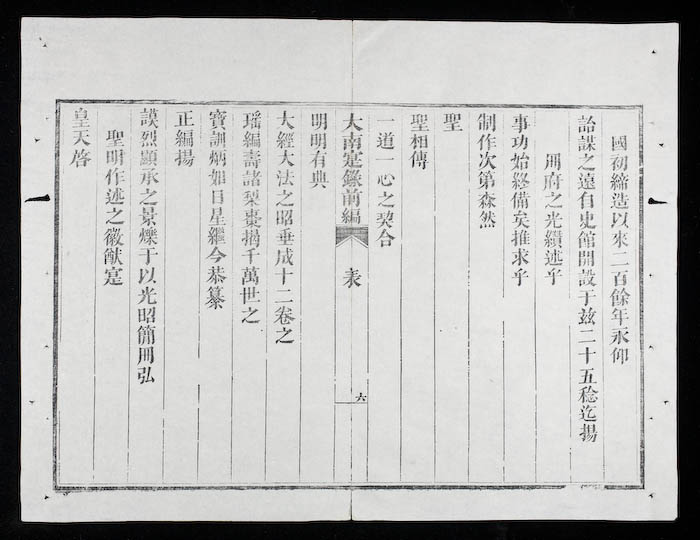 國初締造以來二百餘年永仰
詒謀之遠自史館開設于兹二十五稔迄揚
冊府之光續述乎
事功始終備矣推求乎
制作次第森然
聖
聖相傳
一道一心之契合
大南寔錄前編 表 六
明明有典
大經大法之昭垂成十二卷之
瑶編壽諸梨棗揭千萬世之
寶訓炳如日星繼今恭纂
正編揚
謨烈顯承之景爍于以光昭簡冊弘
聖明作述之徽猷寔
皇天啓